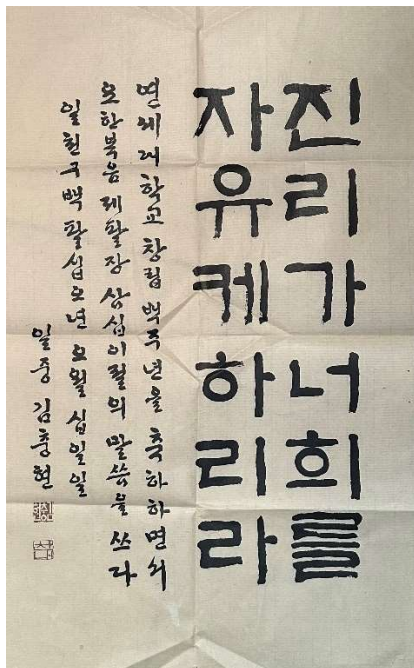 진리가 너희를
자유케 하리라
연세대학교 창립 백주년을 축하하면서
요한복음 제팔장 삼십이절의 말씀을 쓰다
일천구백팔십오년 오월 십일일
일중 김충현